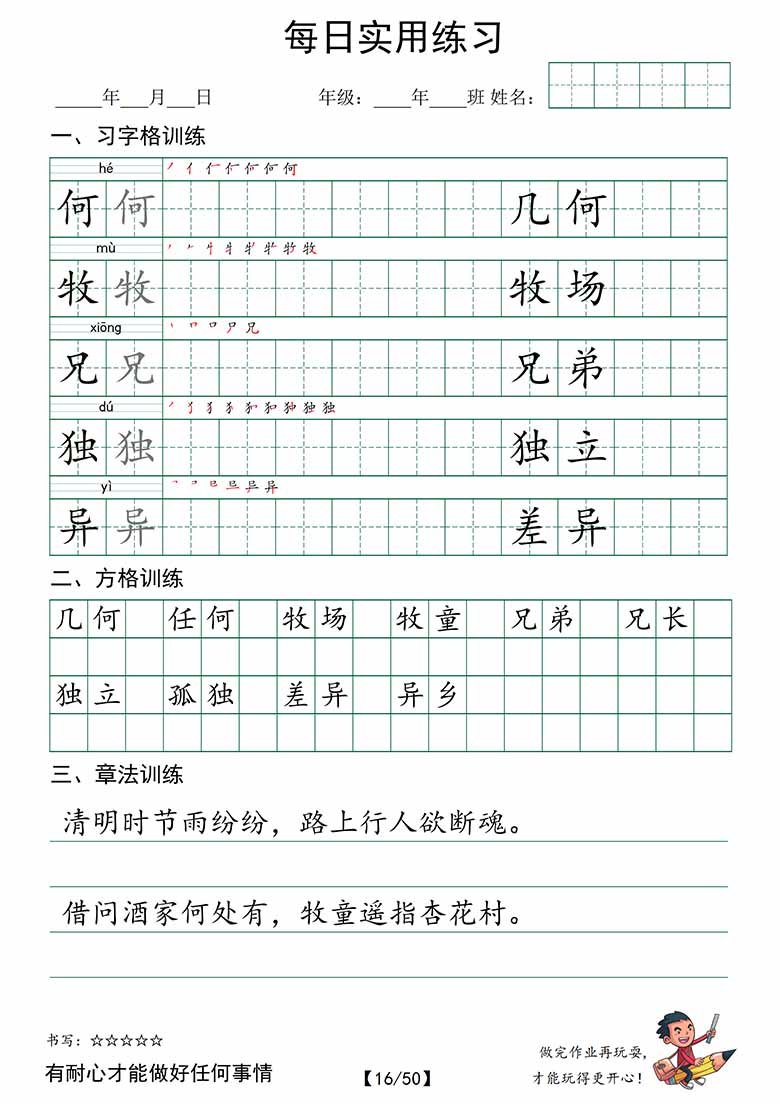 每日实用练习
_____年___月___日 年级：____年____班 姓名：
一、习字格训练
hé
何 何 几 何
mù
牧 牧 牧 场
xiōng
兄 兄 兄 弟
dú
独 独 独 立
yì
异 异 差 异
二、方格训练
几何 任何 牧场 牧童 兄弟 兄长
独立 孤独 差异 异乡
三、章法训练
清明时节雨纷纷，路上行人欲断魂。
借问酒家何处有，牧童遥指杏花村。
书写：☆☆☆☆☆
有耐心才能做好任何事情
【16/50】
做完作业再玩耍，
才能玩得更开心！